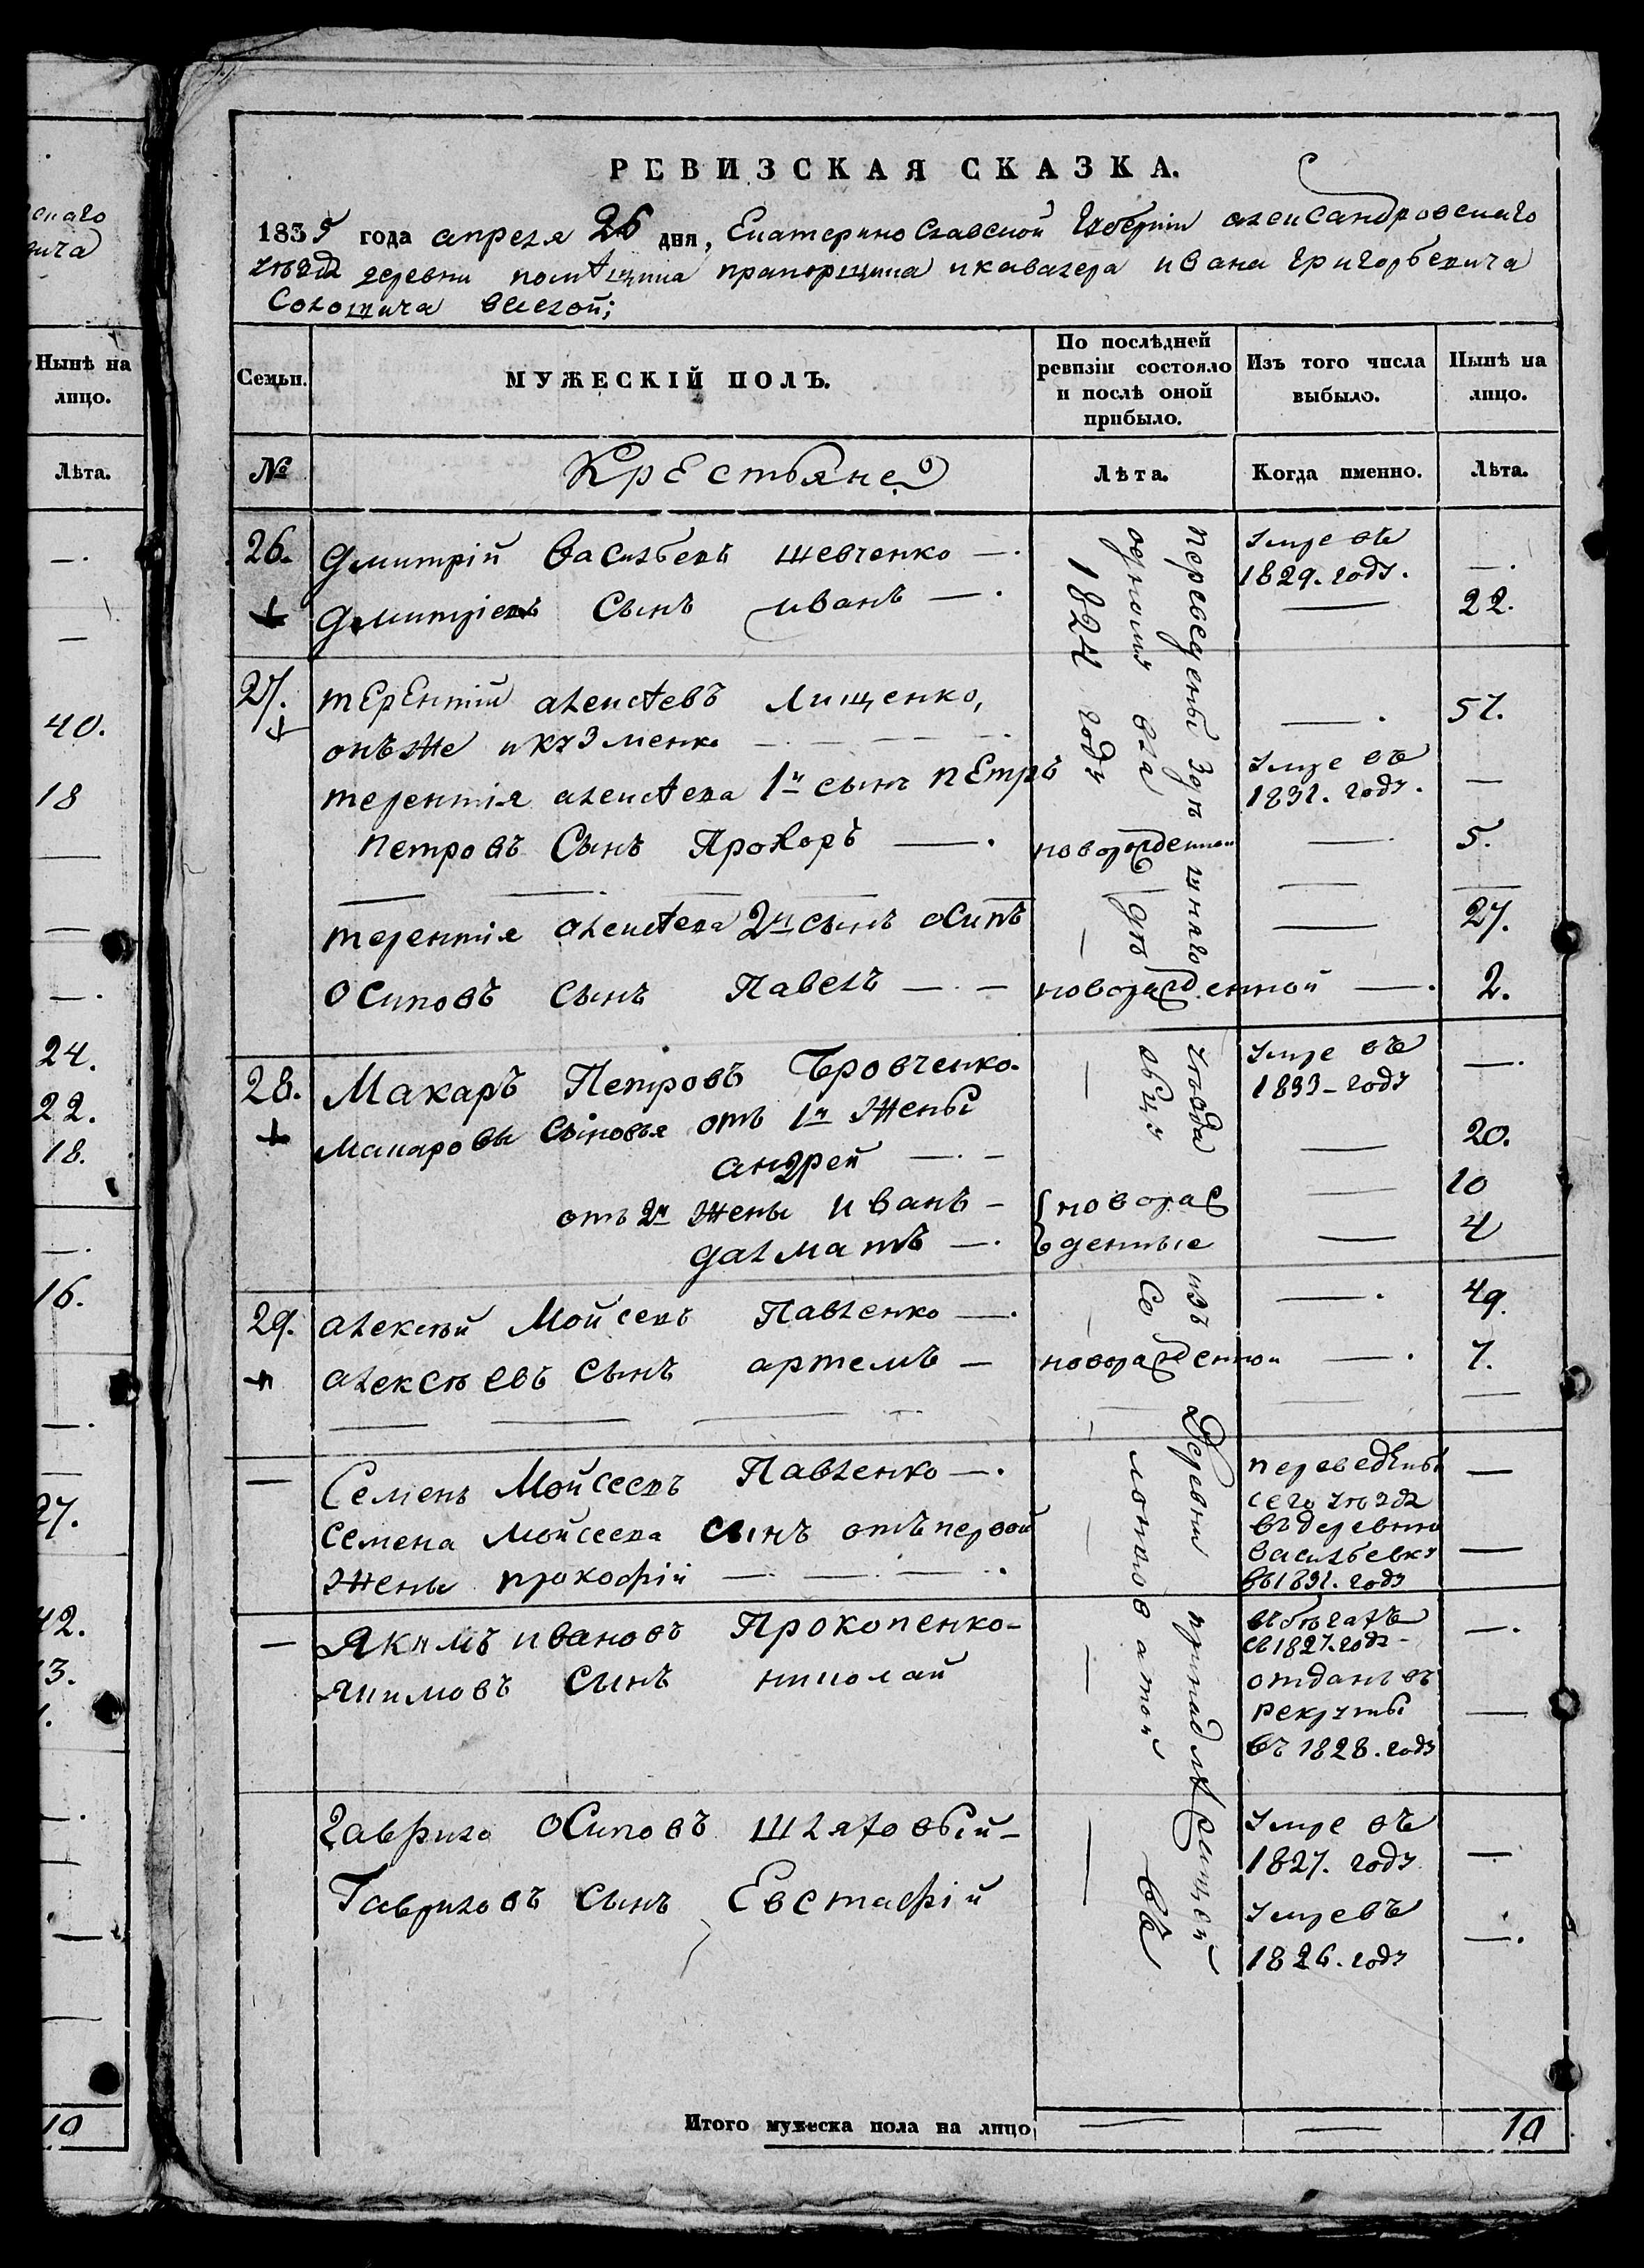 РЕВИЗСКАЯ СКАЗКА.
1835 года апреля 26 дня, Екатеринославской губернии александровскаго
уѣзда деревни помѣщика прапорщика и кавалера ивана григорьевича
веселой;
Семьи.
МУЖЕСКІЙ ПОЛЪ.
По послѣдней
ревизіи состояло
и послѣ оной
прибыло.
Изъ того числа
выбыло.
Нынѣ на
лицо.
№
Крестьяне
Лѣта.
Когда именно.
Лѣта.
26. Дмитрій васильевъ шевченко — умре въ
1829. году. —.
Дмитріевъ сынъ иванъ — — 22.
27. терентій алексѣевъ лищенко, — 57.
онъ же и кузменко
терентія алексѣева 1й сынъ петръ умре въ
1831. году. —
петровъ сынъ Прокоръ — новорожденной — 5.
терентія алексѣева 2й сынъ осипъ — — 27.
осиповъ сынъ Павелъ — новорожденной — 2.
28. Макаръ Петровъ Бровченко — умре въ
1833 году —
макаровы сыновья отъ 1й жены
андрей — — 20.
отъ 2й жены иванъ — новорож — 10
далматъ — денные — 4
29. алексѣй Мойсеевъ Павленко — — 49.
алексѣевъ сынъ артемъ — новорожденной — 7.
— Семенъ Мойсеевъ Павленко — переведены —
сего уѣзда
семена мойсеева сынъ отъ первой въ деревню
васильевку —
жены прокофій въ 1831. году
— Якимъ ивановъ Прокопенко — въ бѣгахъ
съ 1827. года —
якимовъ сынъ николай — отданъ въ
рекруты —
въ 1828. году
гаврило осиповъ — умре въ
1827. году —
Гавриловъ сынъ Евстафій — умре въ
1826. году —
переведены здѣшнаго уѣзда изъ деревни принадлѣжащей
въ
1824 году
Итого мужеска пола на лицо — — 10
Нынѣ на
лицо.
Лѣта.
40.
18
24.
22.
18.
16.
27.
42.
10